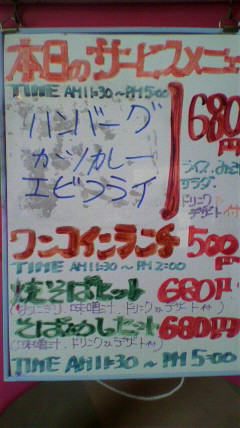 本日のサービスメニュー
TIME AM11:30〜PM5:00
ハンバーグ
カツカレー
エビフライ
680円
ライス、みそ汁
サラダ、
ドリンク
デザート付
ワンコインランチ 500円
TIME AM11:30〜PM2:00
焼そばセット 660円
味噌汁、ドリンク
デザート付)
そばめしセット 680円
(味噌汁、ドリンク デザート付)
TIME AM11:30 〜 PM5:00